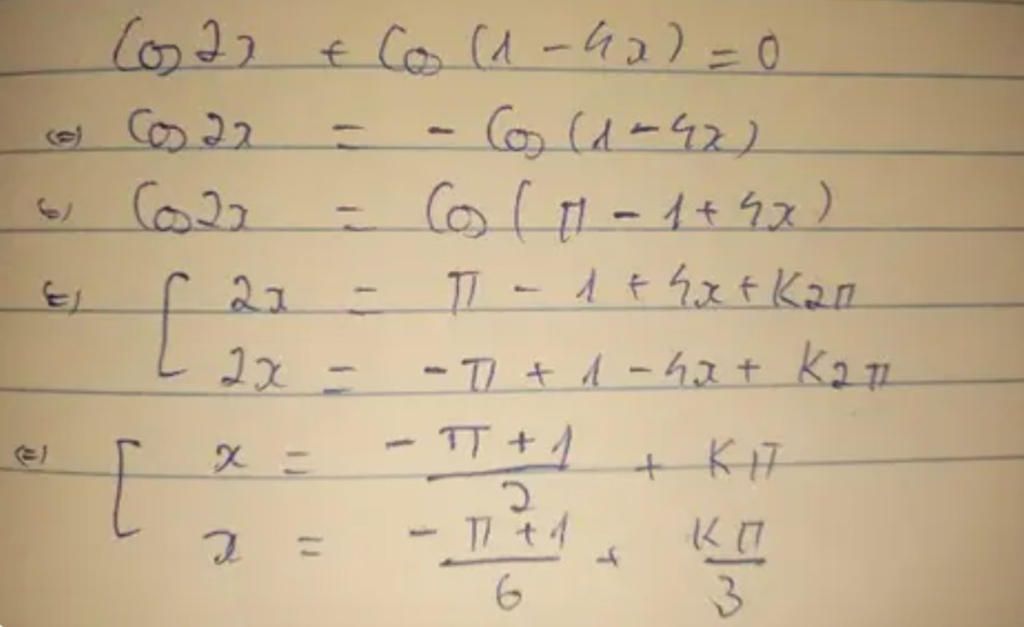 Cos 2x + Cos (1 - 4x) = 0
(=) Cos 2x = - Cos (1 - 4x)
(=) Cos 2x = Cos ( π - 1 + 4x )
(=) [ 2x = π - 1 + 4x + K2π
2x = - π + 1 - 4x + K2π
(=) [ x = (- π + 1)/2 + Kπ
x = (- π + 1)/6 + Kπ/3